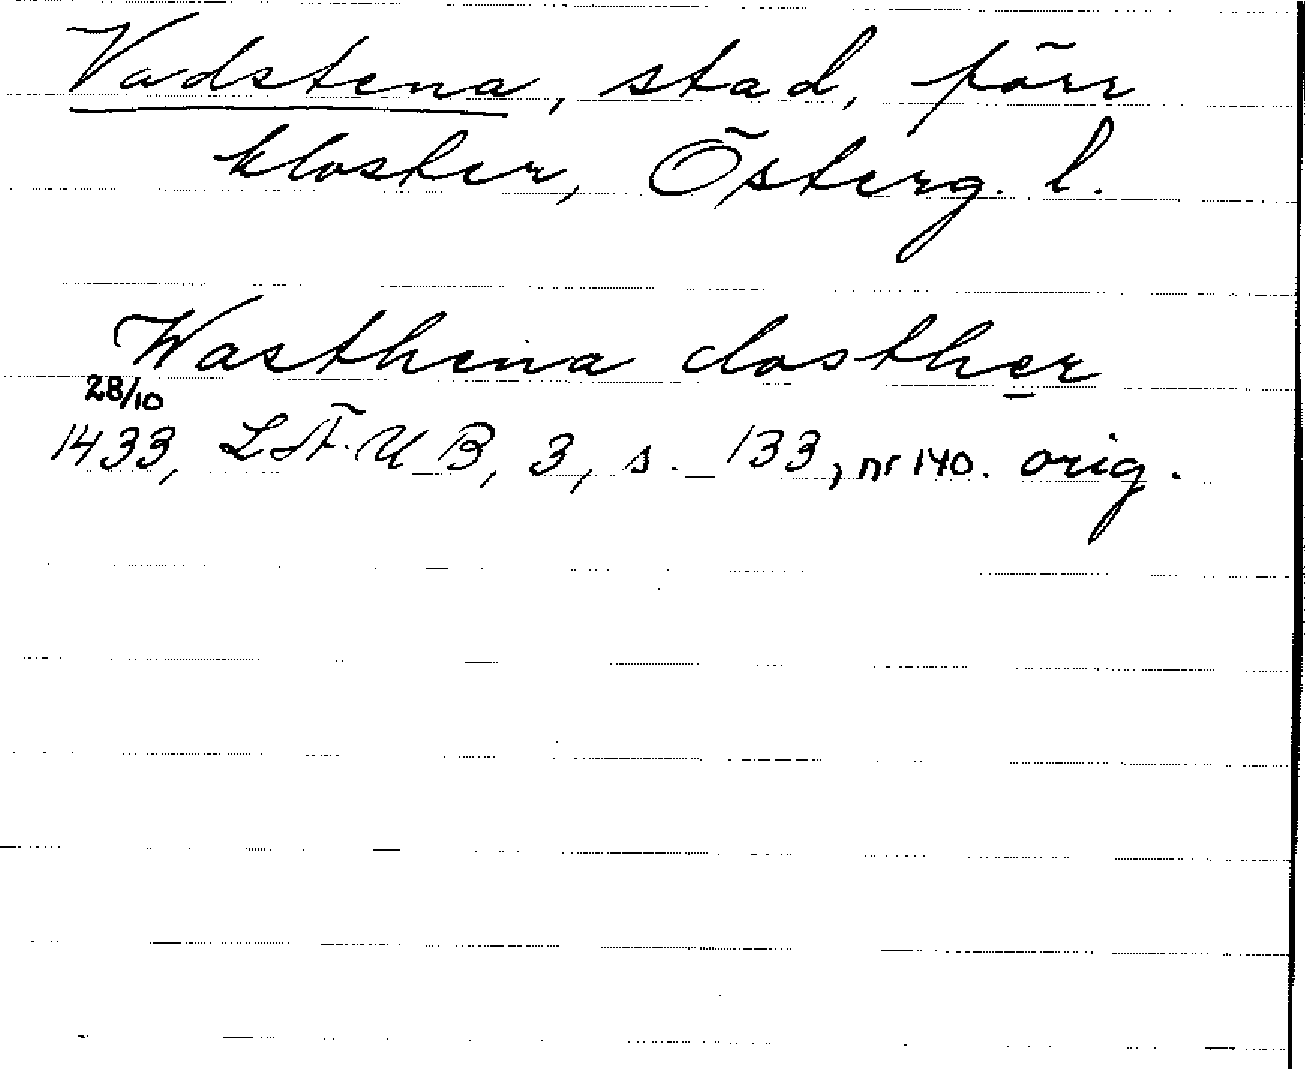 Vadstena, stad, förr
kloster, Österg. l.
Wasthena closther
28/10
1433, LLUB, 3, s. 133, nr 140. orig.